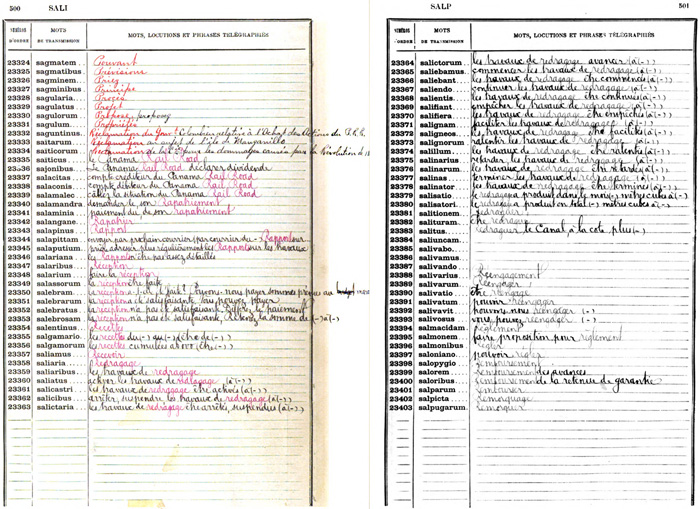 500 SALI
NUMÉROS D'ORDRE MOTS DE TRANSMISSION MOTS, LOCUTIONS ET PHRASES TÉLÉGRAPHIÉS
23324 sagmatem
23325 sagmatibus Prévisions
23326 sagminem
23327 sagminibus Principe
23328 sagularia Procès
23329 sagulatus Projet
23330 sagulorum
23331 sagulum
23332 saguntinus Réclamation du
23333 saitarum Réclamation au sujet de l'île de Manzanillo
23334 saiticorum
23335 saiticus le Panama Rail Road
23336 sajonibus le Panama Rail Road déclare dividende
23337 salacitas compte créditeur du Panama Rail Road
23338 salaconis compte débiteur du Panama Rail Road
23339 salamalec câblez la situation du Panama Rail Road
23340 salamandra demande le son Rapatriement
23341 salaminia paiement du de son rapatriement
23342 salangane Rapatrier
23343 salapinus Rapport
23344 salapittam envoyez par prochain courrier par courrier du (-) Rapport sur
23345 salaputium Rapport sur les travaux
23346 salariana les Rapports
23347 salaribus Réception
23348 salarium faire la réception
23349 salassorum la réception
23350 salebram
23351 salebrarum la réception
23352 salebratus la réception n'a pas été satisfaisante, différer le paiement
23353 salebrosam la réception n'a pas été satisfaisante, retenez la somme de
23354 salentinus Recettes
23355 salgamario les recettes du (-) au (-)
23356 salgamorum les recettes cumulées
23357 saliamus Recevoir
23358 saliaria Redragage
23359 saliaribus les travaux de redragage
23360 saliatus activer les travaux de redragage (à (-))
23361 salicastri les travaux de redragage être activés (à (-))
23362 salicibus arrêter, suspendre les travaux de redragage (à (-))
23363 salictaria les travaux de redragage être arrêtés, suspendus (à (-))
SALP 501
NUMÉROS D'ORDRE MOTS DE TRANSMISSION MOTS, LOCUTIONS ET PHRASES TÉLÉGRAPHIÉS
23364 salictorum les travaux de redragage avancer (à (-))
23365 saliebamus commencer les travaux de redragage (à (-))
23366 saliebant les travaux de redragage être commencés (à (-))
23367 saliendo continuer les travaux de redragage (à (-))
23368 salientis les travaux de redragage être continués (à (-))
23369 salifiant empêcher les travaux de redragage (à (-))
23370 salifiera les travaux de redragage être empêchés (à (-))
23371 salignam faciliter les travaux de redragage (à (-))
23372 saligneos les travaux de redragage être facilités (à (-))
23373 salignorum ralentir les travaux de redragage (à (-))
23374 salillum les travaux de redragage être ralentis (à (-))
23375 salinarius retarder les travaux de redragage (à (-))
23376 salinarum les travaux de redragage être retardés (à (-))
23377 salinas terminer les travaux de redragage (à (-))
23378 salinator les travaux de redragage être terminés (à (-))
23379 salisatio le redragage
23380 salisatori le redragage a produit en total (-) mètres cubes (à (-))
23381 salitionem redraguer
23382 salituram être redragué
23383 salitus redraguer le Canal à la cote plus (-)
23384 saliuncam
23385 salivabo
23386 salivamus
23387 salivando
23388 salivarius Réengagement
23389 salivarum Réengager
23390 salivatio être réengagé
23391 salivatum pouvoir réengager
23392 salivavit pouvons nous réengager (-)
23393 salivosus vous pouvez réengager (-)
23394 salmacidam règlement
23395 salmonem faire proposition pour règlement
23396 salmonibus régler
23397 saloniano pouvoir régler
23398 salopygio remboursement
23399 salorem remboursement des avances
23400 saloribus remboursement de la retenue de garantie
23401 salparum rembourser
23402 salpicta remorquage
23403 salpugarum remorquer